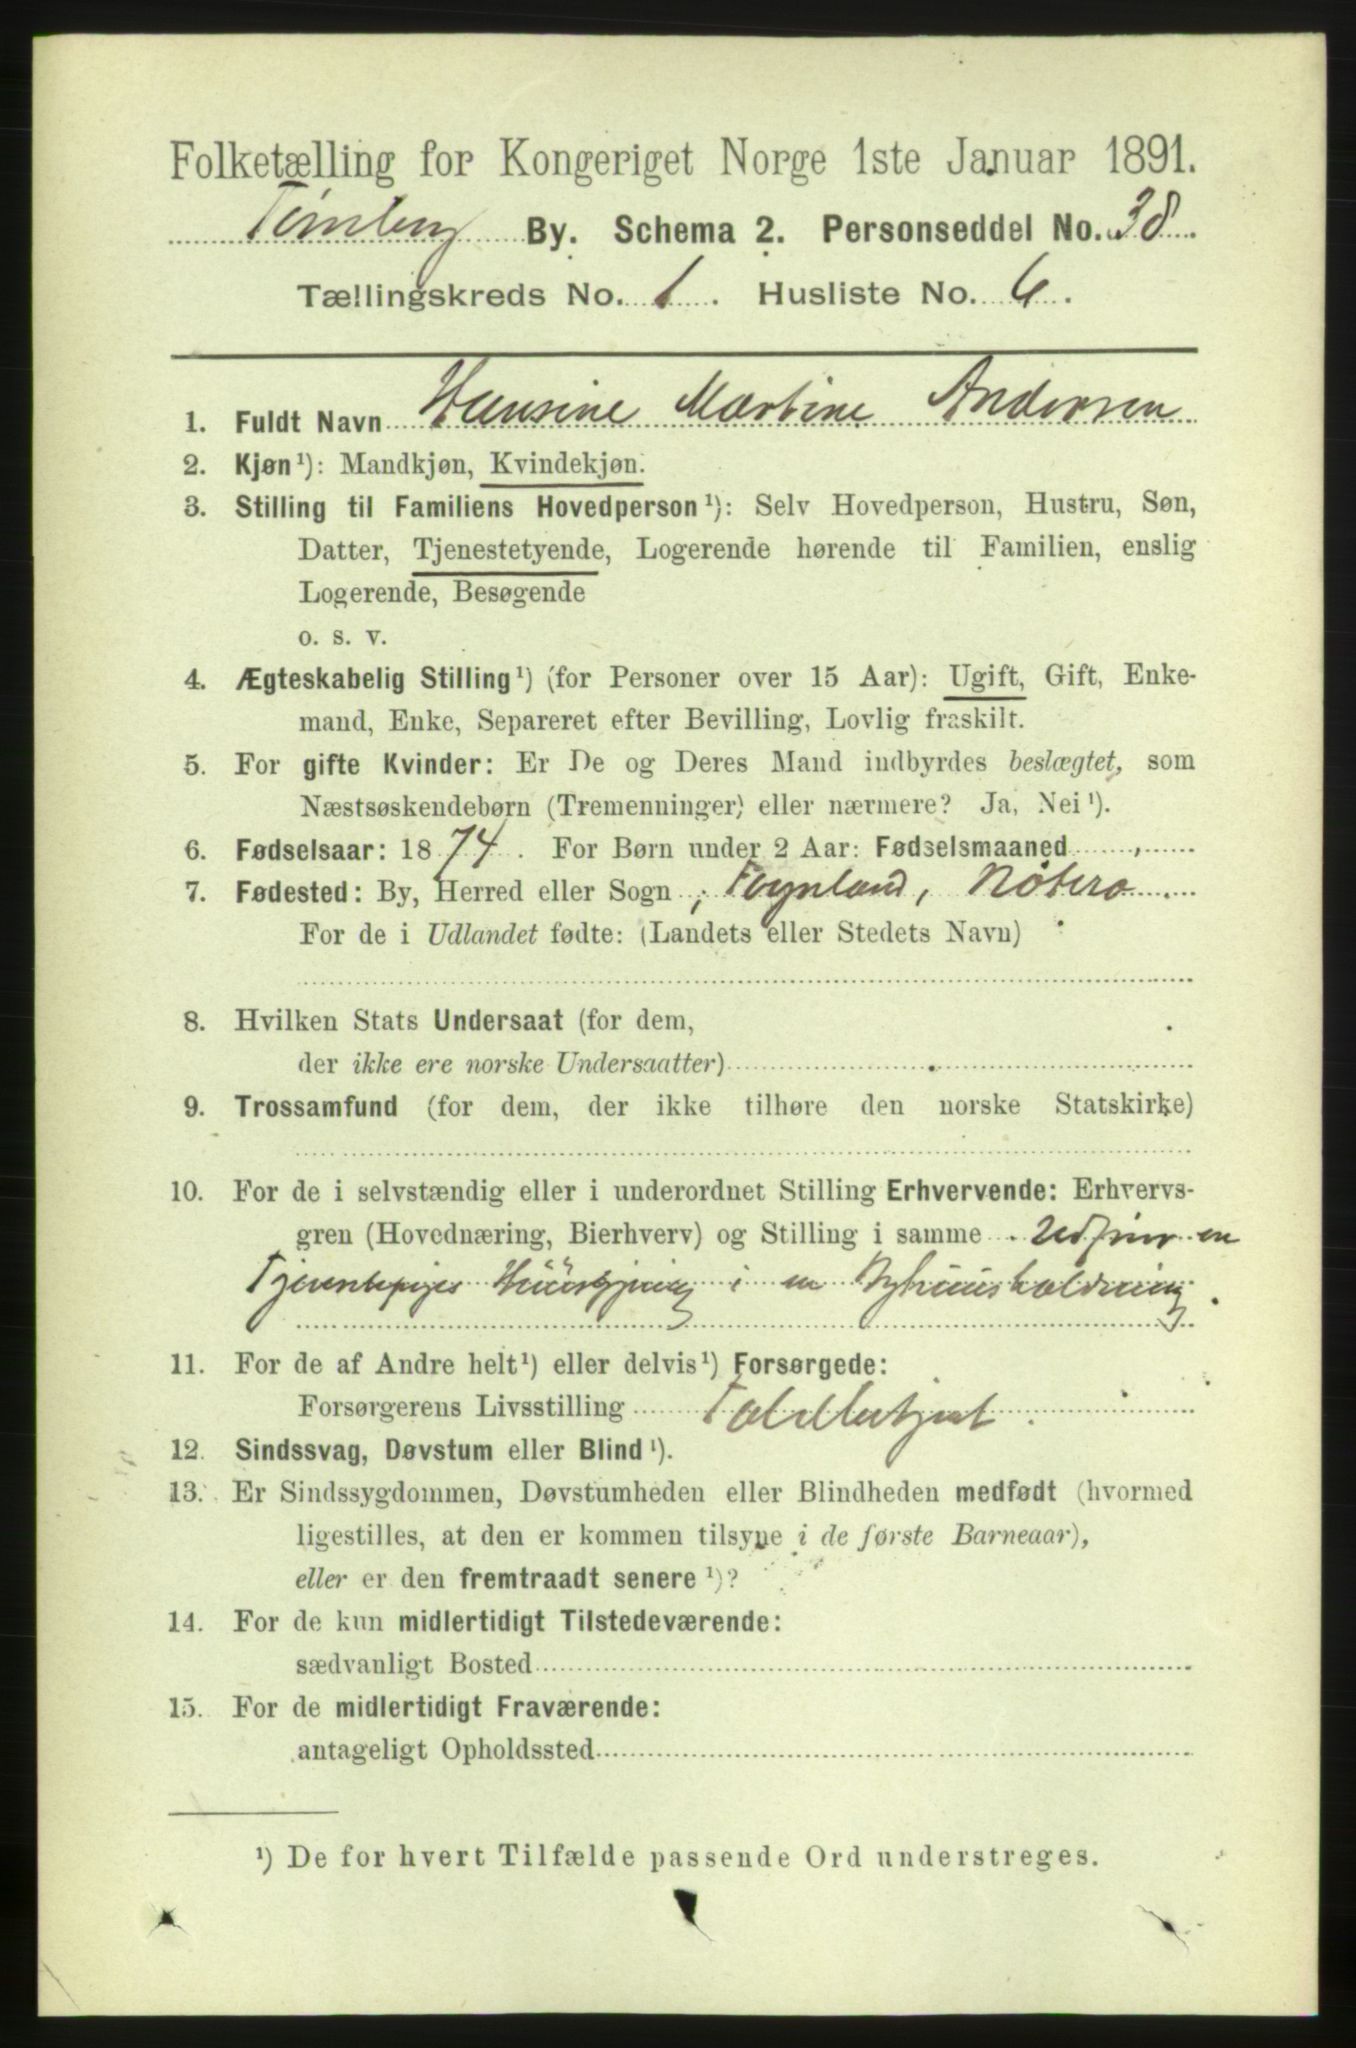 Folketælling for Kongeriget Norge 1ste Januar 1891.
Tönsberg By. Schema 2. Personseddel No. 38.
Tællingskreds No. 1. Husliste No. 6.
1. Fuldt Navn Hansine Martine Andersen
2. Kjøn¹): Mandkjøn, Kvindekjøn.
3. Stilling til Familiens Hovedperson¹): Selv Hovedperson, Hustru, Søn,
Datter, Tjenestetyende, Logerende hørende til Familien, enslig
Logerende, Besøgende
o. s. v.
4. Ægteskabelig Stilling¹) (for Personer over 15 Aar): Ugift, Gift, Enke-
mand, Enke, Separeret efter Bevilling, Lovlig fraskilt.
5. For gifte Kvinder: Er De og Deres Mand indbyrdes beslægtet, som
Næstsøskendebørn (Tremenninger) eller nærmere? Ja, Nei¹).
6. Fødselsaar: 1874. For Børn under 2 Aar: Fødselsmaaned
7. Fødested: By, Herred eller Sogn Föynland, Nöterö
For de i Udlandet fødte: (Landets eller Stedets Navn)
8. Hvilken Stats Undersaat (for dem,
der ikke ere norske Undersaatter)
9. Trossamfund (for dem, der ikke tilhøre den norske Statskirke)
10. For de i selvstændig eller i underordnet Stilling Erhvervende: Erhvervs-
gren (Hovednæring, Bierhverv) og Stilling i samme Udfører en
Tjenestepiges Huusgjerning i en Byhuusholdning.
11. For de af Andre helt¹) eller delvis¹) Forsørgede:
Forsørgerens Livsstilling Toldbetjent.
12. Sindssvag, Døvstum eller Blind¹).
13. Er Sindssygdommen, Døvstumheden eller Blindheden medfødt (hvormed
ligestilles, at den er kommen tilsyne i de første Barneaar),
eller er den fremtraadt senere¹)?
14. For de kun midlertidigt Tilstedeværende:
sædvanligt Bosted
15. For de midlertidigt Fraværende:
antageligt Opholdssted
¹) De for hvert Tilfælde passende Ord understreges.